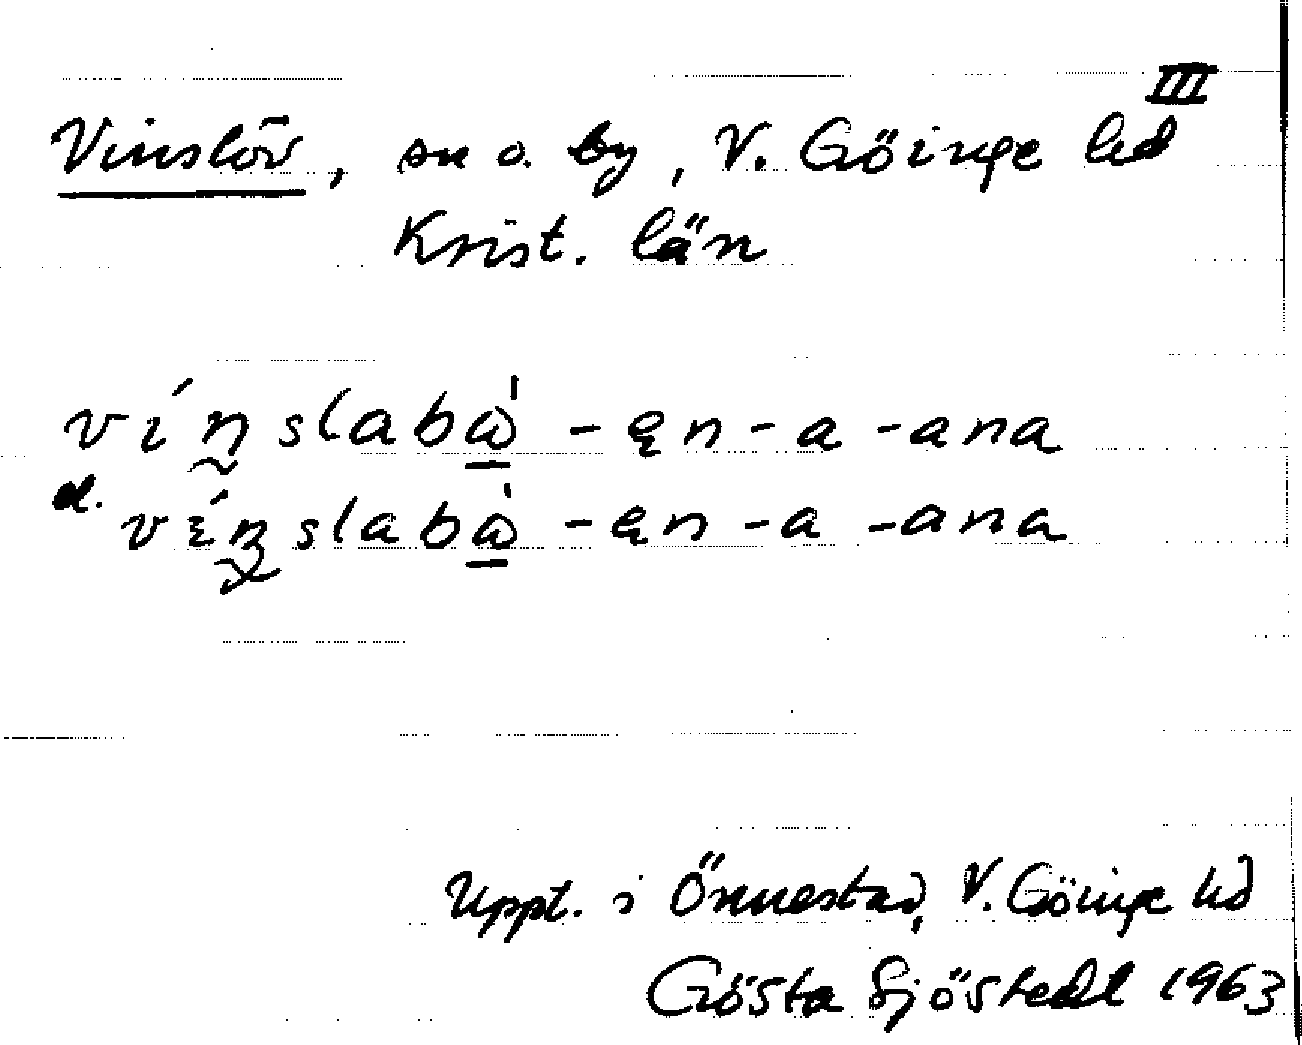 III
Vinslöv, sn o. by, V. Göinge hd
Krist. län
vínslabò̱ - ęn - a - ana
el. vénslabò̱ - ęn - a - ana
Uppt. i Önnestad, V. Göinge hd
Gösta Sjöstedt 1963